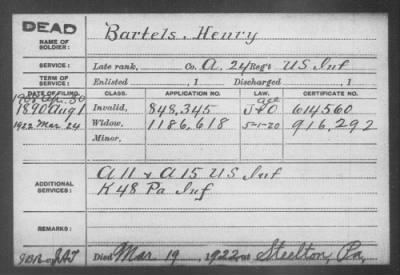 DEAD
NAME OF SOLDIER: Bartels, Henry
SERVICE: Late rank, Co. A, 24 Regt US Inf
TERM OF SERVICE: Enlisted , 1 Discharged , 1
DATE OF FILING. CLASS. APPLICATION NO. LAW. CERTIFICATE NO.
1908 Apr. 30 age
1890 Aug 1 Invalid, 848,345 J&O 614560
1922 Mar 24 Widow, 1186,618 5-1-20 916,292
Minor,
ADDITIONAL SERVICES: A 11 & A 15 US Inf
K 48 Pa Inf
REMARKS:
Died Mar 19, 1922 at Steelton, Pa.